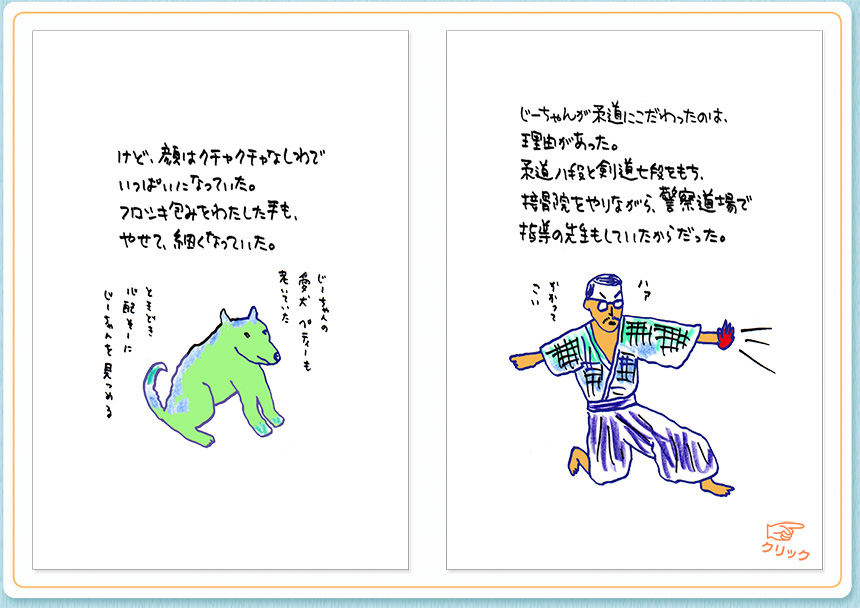 けど、顔はクチャクチャなしわで
いっぱいになっていた。
フロシキ包みをわたした手も、
やせて、細くなっていた。
じーちゃんの
愛犬 ペティーも
老いていた
ときどき
心配そーに
じーちゃんを見つめる
じーちゃんが柔道にこだわったのは、
理由があった。
柔道八段と剣道七段をもち、
接骨院をやりながら、警察道場で
指導の先生もしていたからだった。
ハァ
かかって
こい
クリック